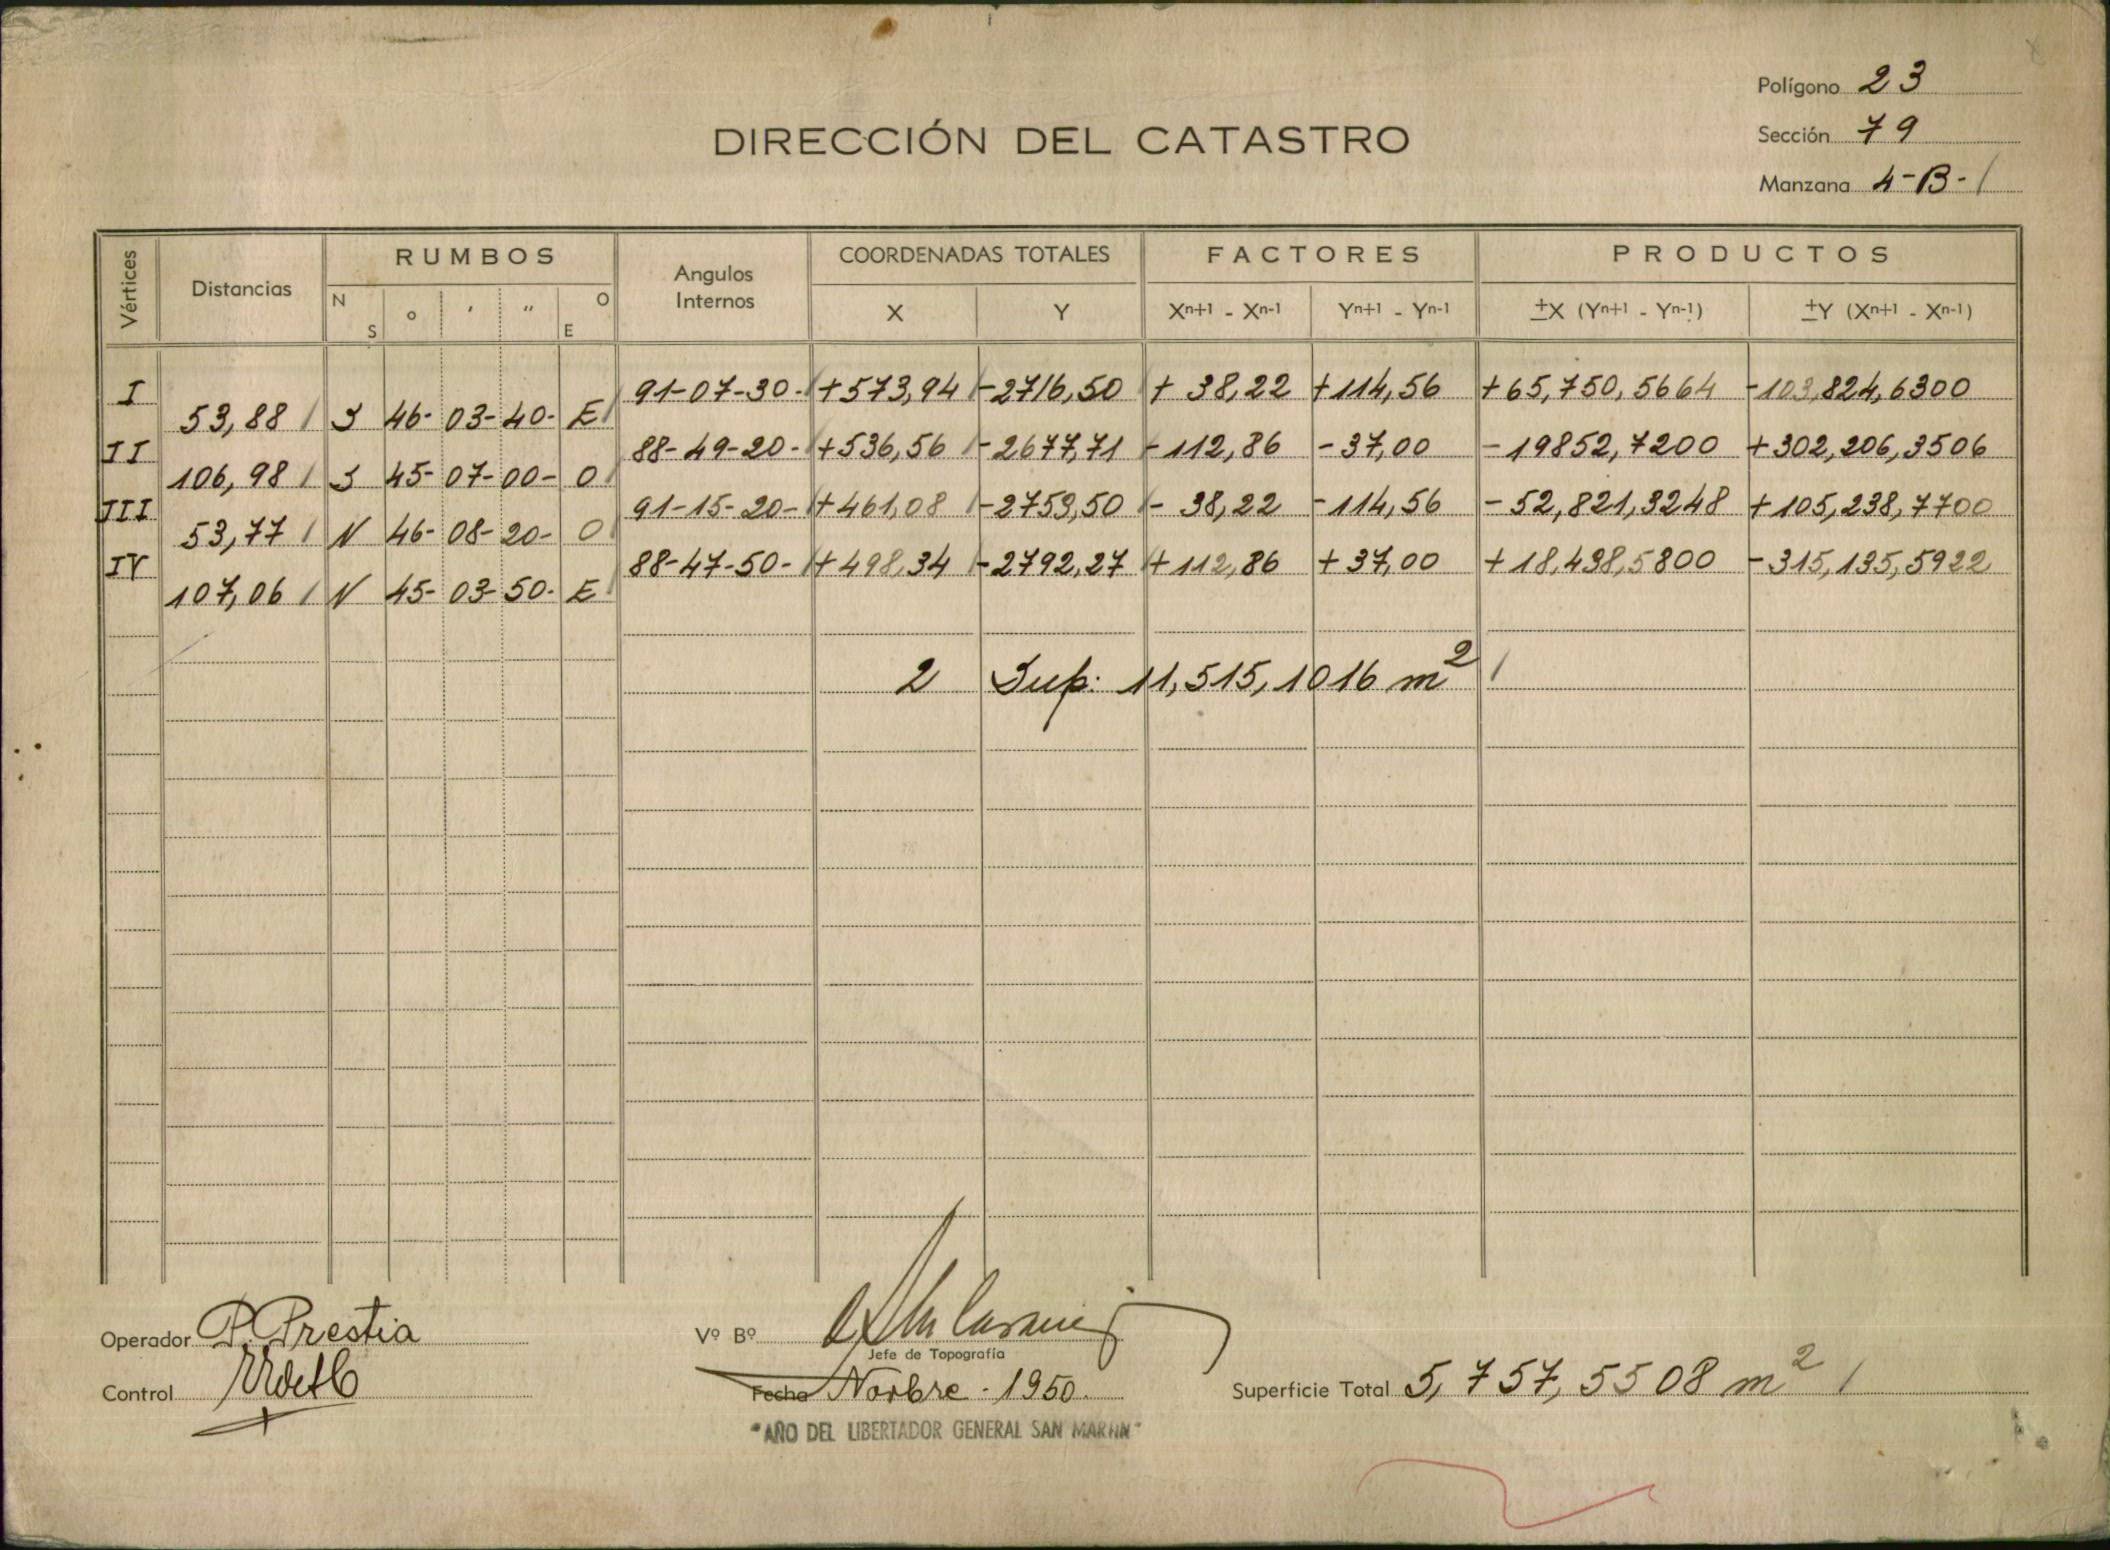 Polígono 23
DIRECCIÓN DEL CATASTRO
Sección 79
Manzana 4-B-
Vértices Distancias RUMBOS Angulos Internos COORDENADAS TOTALES FACTORES PRODUCTOS
N S o ' '' O E X Y Xn+1 - Xn-1 Yn+1 - Yn-1 ±X (Yn+1 - Yn-1) ±Y (Xn+1 - Xn-1)
I 91-07-30- +573,94 -2716,50 + 38,22 +114,56 +65,750,5664 -103,824,6300
53,88 S 46- 03- 40- E
II 88-49-20- +536,56 -2677,71 -112,86 -37,00 -19852,7200 +302,206,3506
106,98 S 45- 07- 00- O
III 91-15-20- +461,08 -2753,50 - 38,22 -114,56 -52,821,3248 +105,238,7700
53,77 N 46- 08- 20- O
IV 88-47-50- +498,34 -2792,27 +112,86 +37,00 +18,438,5800 -315,135,5922
107,06 N 45- 03- 50- E
2 Sup: 11,515,1016 m2
Operador P. Prestia
Vº Bº
Jefe de Topografía
Control
Fecha Novbre - 1950.
Superficie Total 5,757,5508 m2
"AÑO DEL LIBERTADOR GENERAL SAN MARTIN"